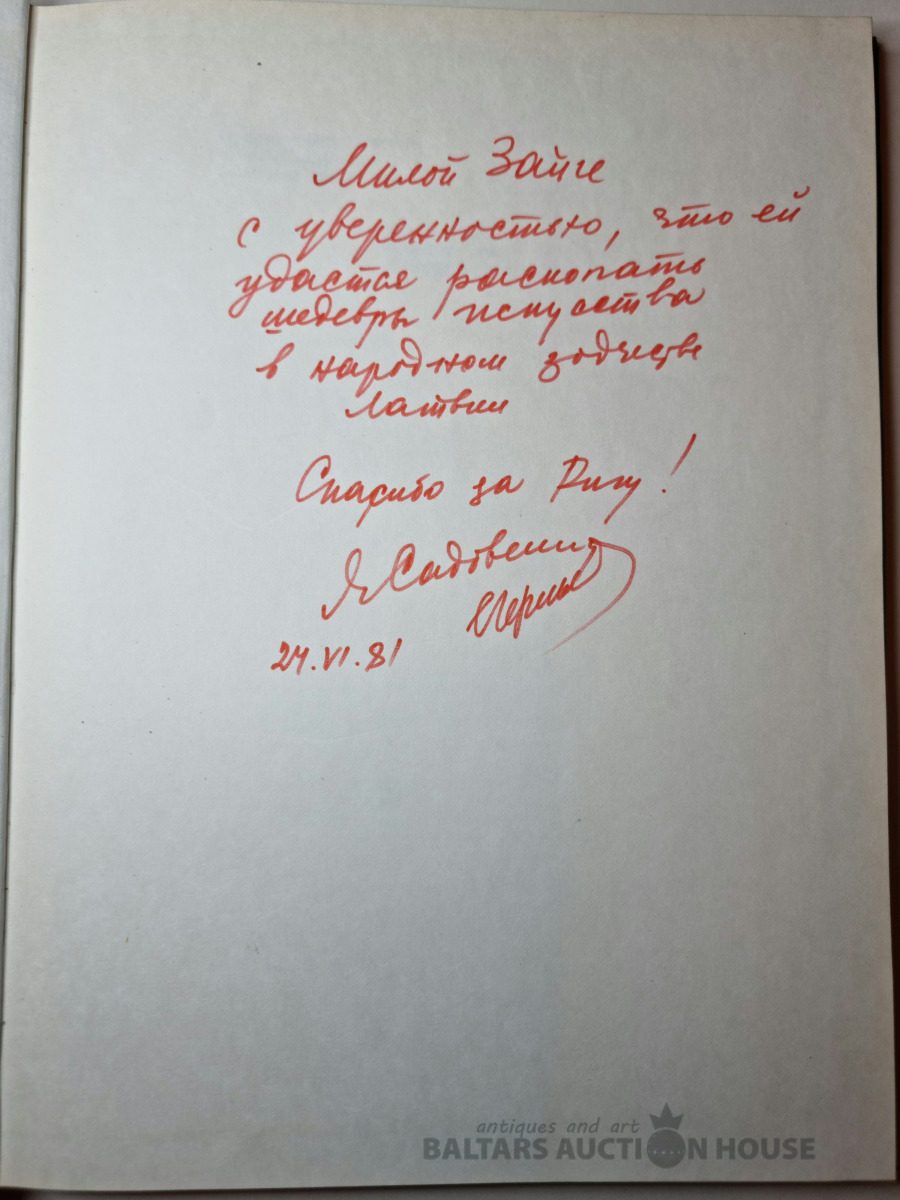 Милой Зайге
с уверенностью, что ей
удастся раскопать
шедевры искусства
в народном зодчестве
Латвии
Спасибо за Ригу!
24.VI.81
antiques and art
BALTARS AUCTION HOUSE